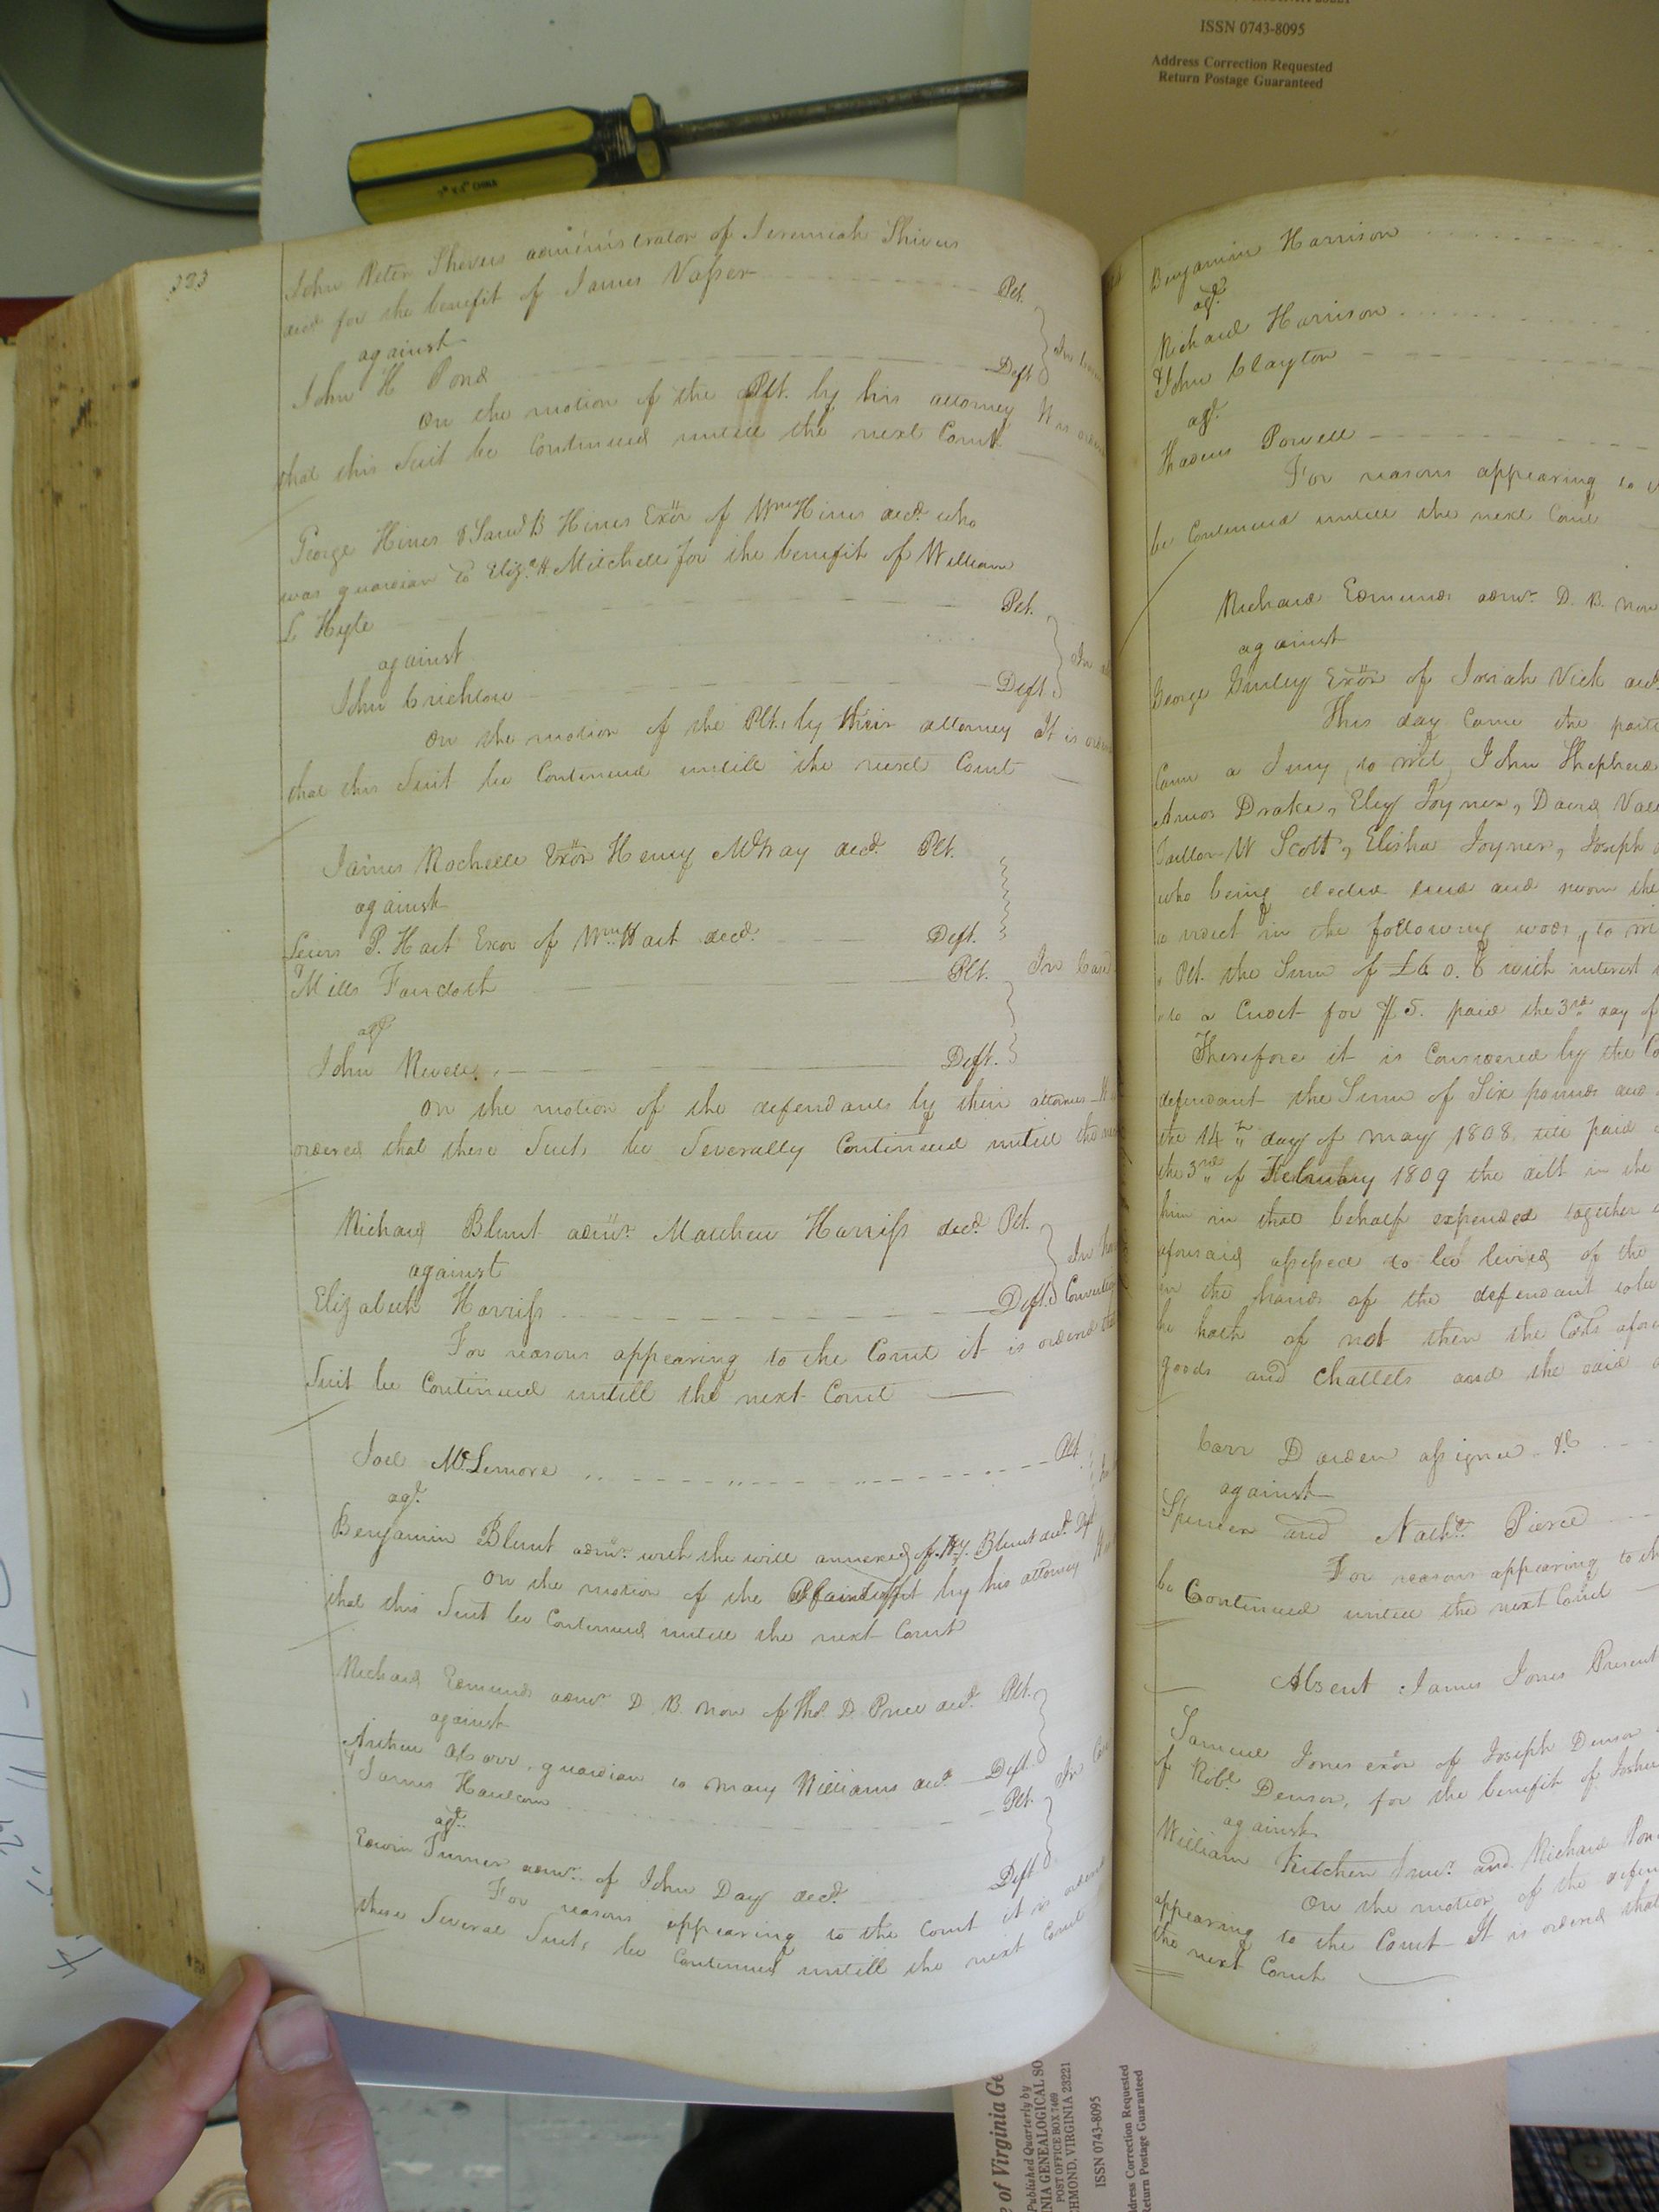 ISSN 0743-8095
Address Correction Requested
Return Postage Guaranteed
John Peter Shivers administrator of Jeremiah Shivers
decd. for the benefit of James Vasser Plt.
against
John H Pond Deft
On the motion of the Plt. by his attorney
that this Suit be Continued untill the next Court
George Hines & Saml B Hines Exor of Wm Hines decd. who
was guardian to Eliza. H Mitchell for the benefit of William
L Hyte Plt.
against
John Crichlow Deft
On the motion of the Plts. by their attorney It is
that this Suit be Continued untill the next Court
James Rochelle Exor Henry decd. Plt.
against
Lewis P. Hart Exor of Wm. Hart decd. Deft.
Mills Plt.
agt
John Deft.
On the motion of the defendants by their attornies
ordered that these Suits be Severally Continued untill the
Richard Blunt admr. Matthew Harriss decd. Plt.
against
Elizabeth Harriss Deft.
For reasons appearing to the Court it is ordered
Suit be Continued untill the next Court
Joel McLemore Plt.
agt.
Benjamin Blunt admr. with the will annexed of Hy. Blunt decd. Dft
On the motion of the Plaintiff by his attorney
that this Suit be Continued untill the next Court
Richard Edmunds admr. D. B. Non of Thos. D. Price decd. Plt.
against
guardian to Mary Williams Deft.
James Plt.
agt.
Edwin Turner admr. of John Day decd. Deft
For reasons appearing to the Court it is
these Several Suits be Continued untill the next Court
Benjamin Harrison
agt.
Richard Harrison
John Clayton
agt.
Powell
For reasons appearing to
be Continued untill the next Court
Richard Edmunds admr. D. B. Non
against
George Gurley Exor of Josiah Vick decd.
This day Came the
Came a Jury, to wit, John Shepherd
Amos Drake, Eley Joyner, David
W Scott, Elisha Joyner, Joseph
who being elected tried and sworn the
in the following words, to wit
Plt. the Sum of £6.0.8 with interest
to a Credit for $5. paid the 3rd day of
Therefore it is Considered by the
defendant the Sum of Six pounds and
the 14th day of May 1808, till paid
the 3rd of February 1809 the debt in the
him in that behalf expended together
aforesaid assessed to be levied of the
in the hands of the defendant
he hath if not then the Costs
goods and Chattels and the said
Carr Darden assignee &c
against
Spencer and Nathl. Pierce
For reasons appearing to
be Continued untill the next Court
Absent James Jones Present
Samuel Jones exor of Joseph Denson
of Robt. Denson, for the benefit of
against
William Kitchen Junr. and Richard
On the motion of the
appearing to the Court It is ordered that
the next Court
e of Virginia Ge
Published Quarterly by
NIA GENEALOGICAL SO
POST OFFICE BOX 7469
HMOND, VIRGINIA 23221
ISSN 0743-8095
ddress Correction Requested
Return Postage Guaranteed